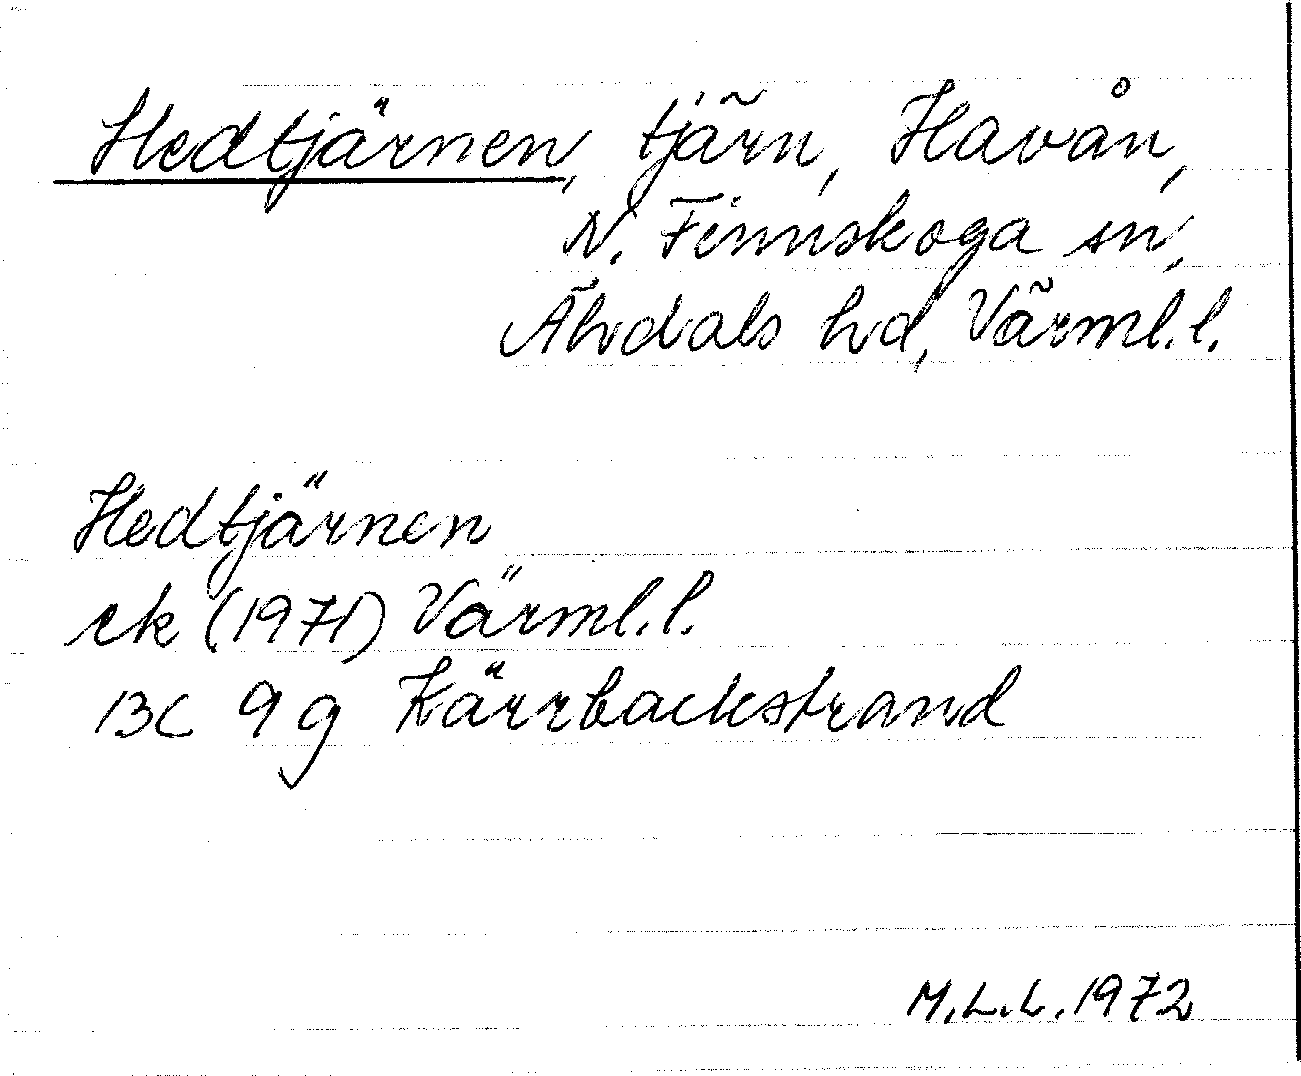 Hedtjärnen, tjärn, Havån,
N. Finnskoga sn,
Älvdals hd, Värml.l.
Hedtjärnen
rk (1971) Värml.l.
13C 9g Kärrbackstrand
M.L.L. 1972